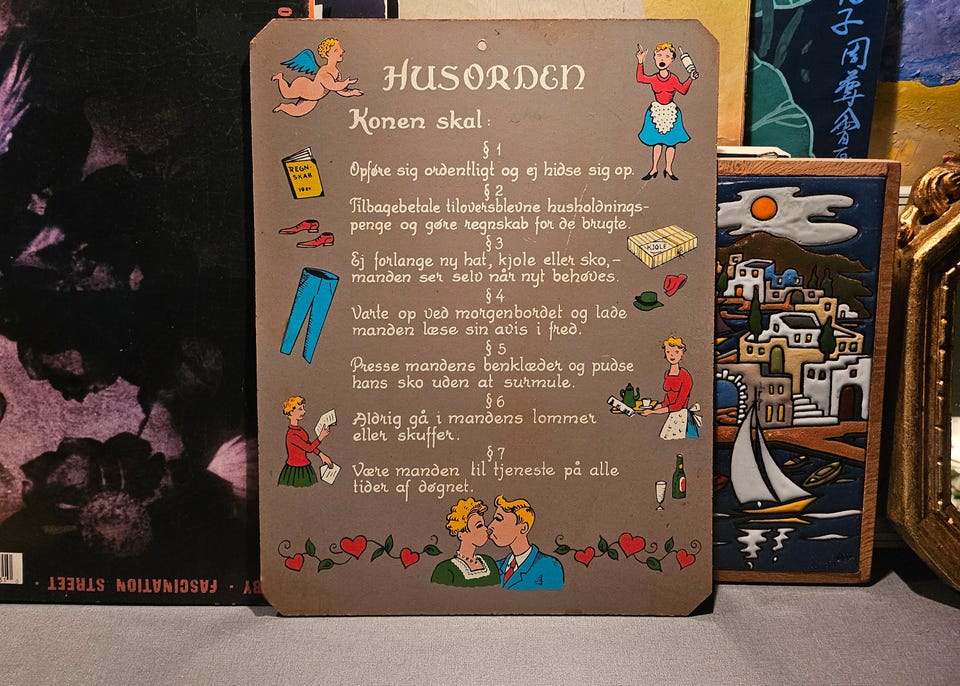 HUSORDEN
Konen skal:
§ 1
Opføre sig ordentligt og ej hidse sig op.
§ 2
Tilbagebetale tiloversblevne husholdnings-
penge og gøre regnskab for de brugte.
§ 3
Ej forlange ny hat, kjole eller sko,-
manden ser selv når nyt behøves.
§ 4
Varte op ved morgenbordet og lade
manden læse sin avis i fred.
§ 5
Presse mandens benklæder og pudse
hans sko uden at surmule.
§ 6
Aldrig gå i mandens lommer
eller skuffer.
§ 7
Være manden til tjeneste på alle
tider af døgnet.
REGN-
SKAB
KJOLE
BY · FASCINATION STREET ·